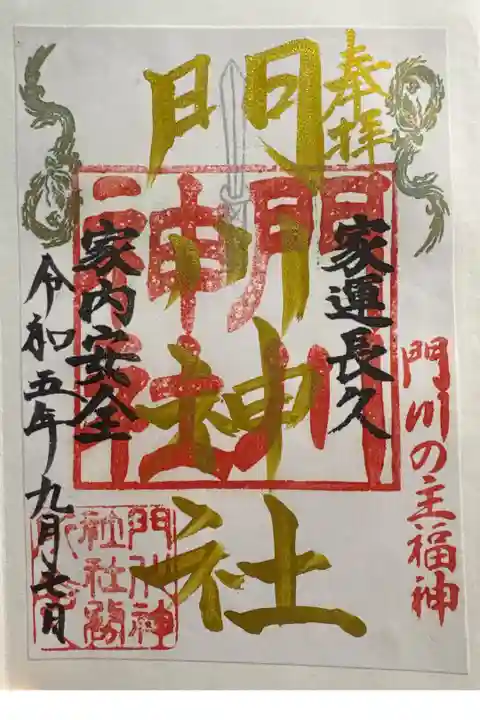 奉拝
門川神社
家運長久
門川の主福神
家内安全
令和五年九月七日
門川
神社
門川神
社社務